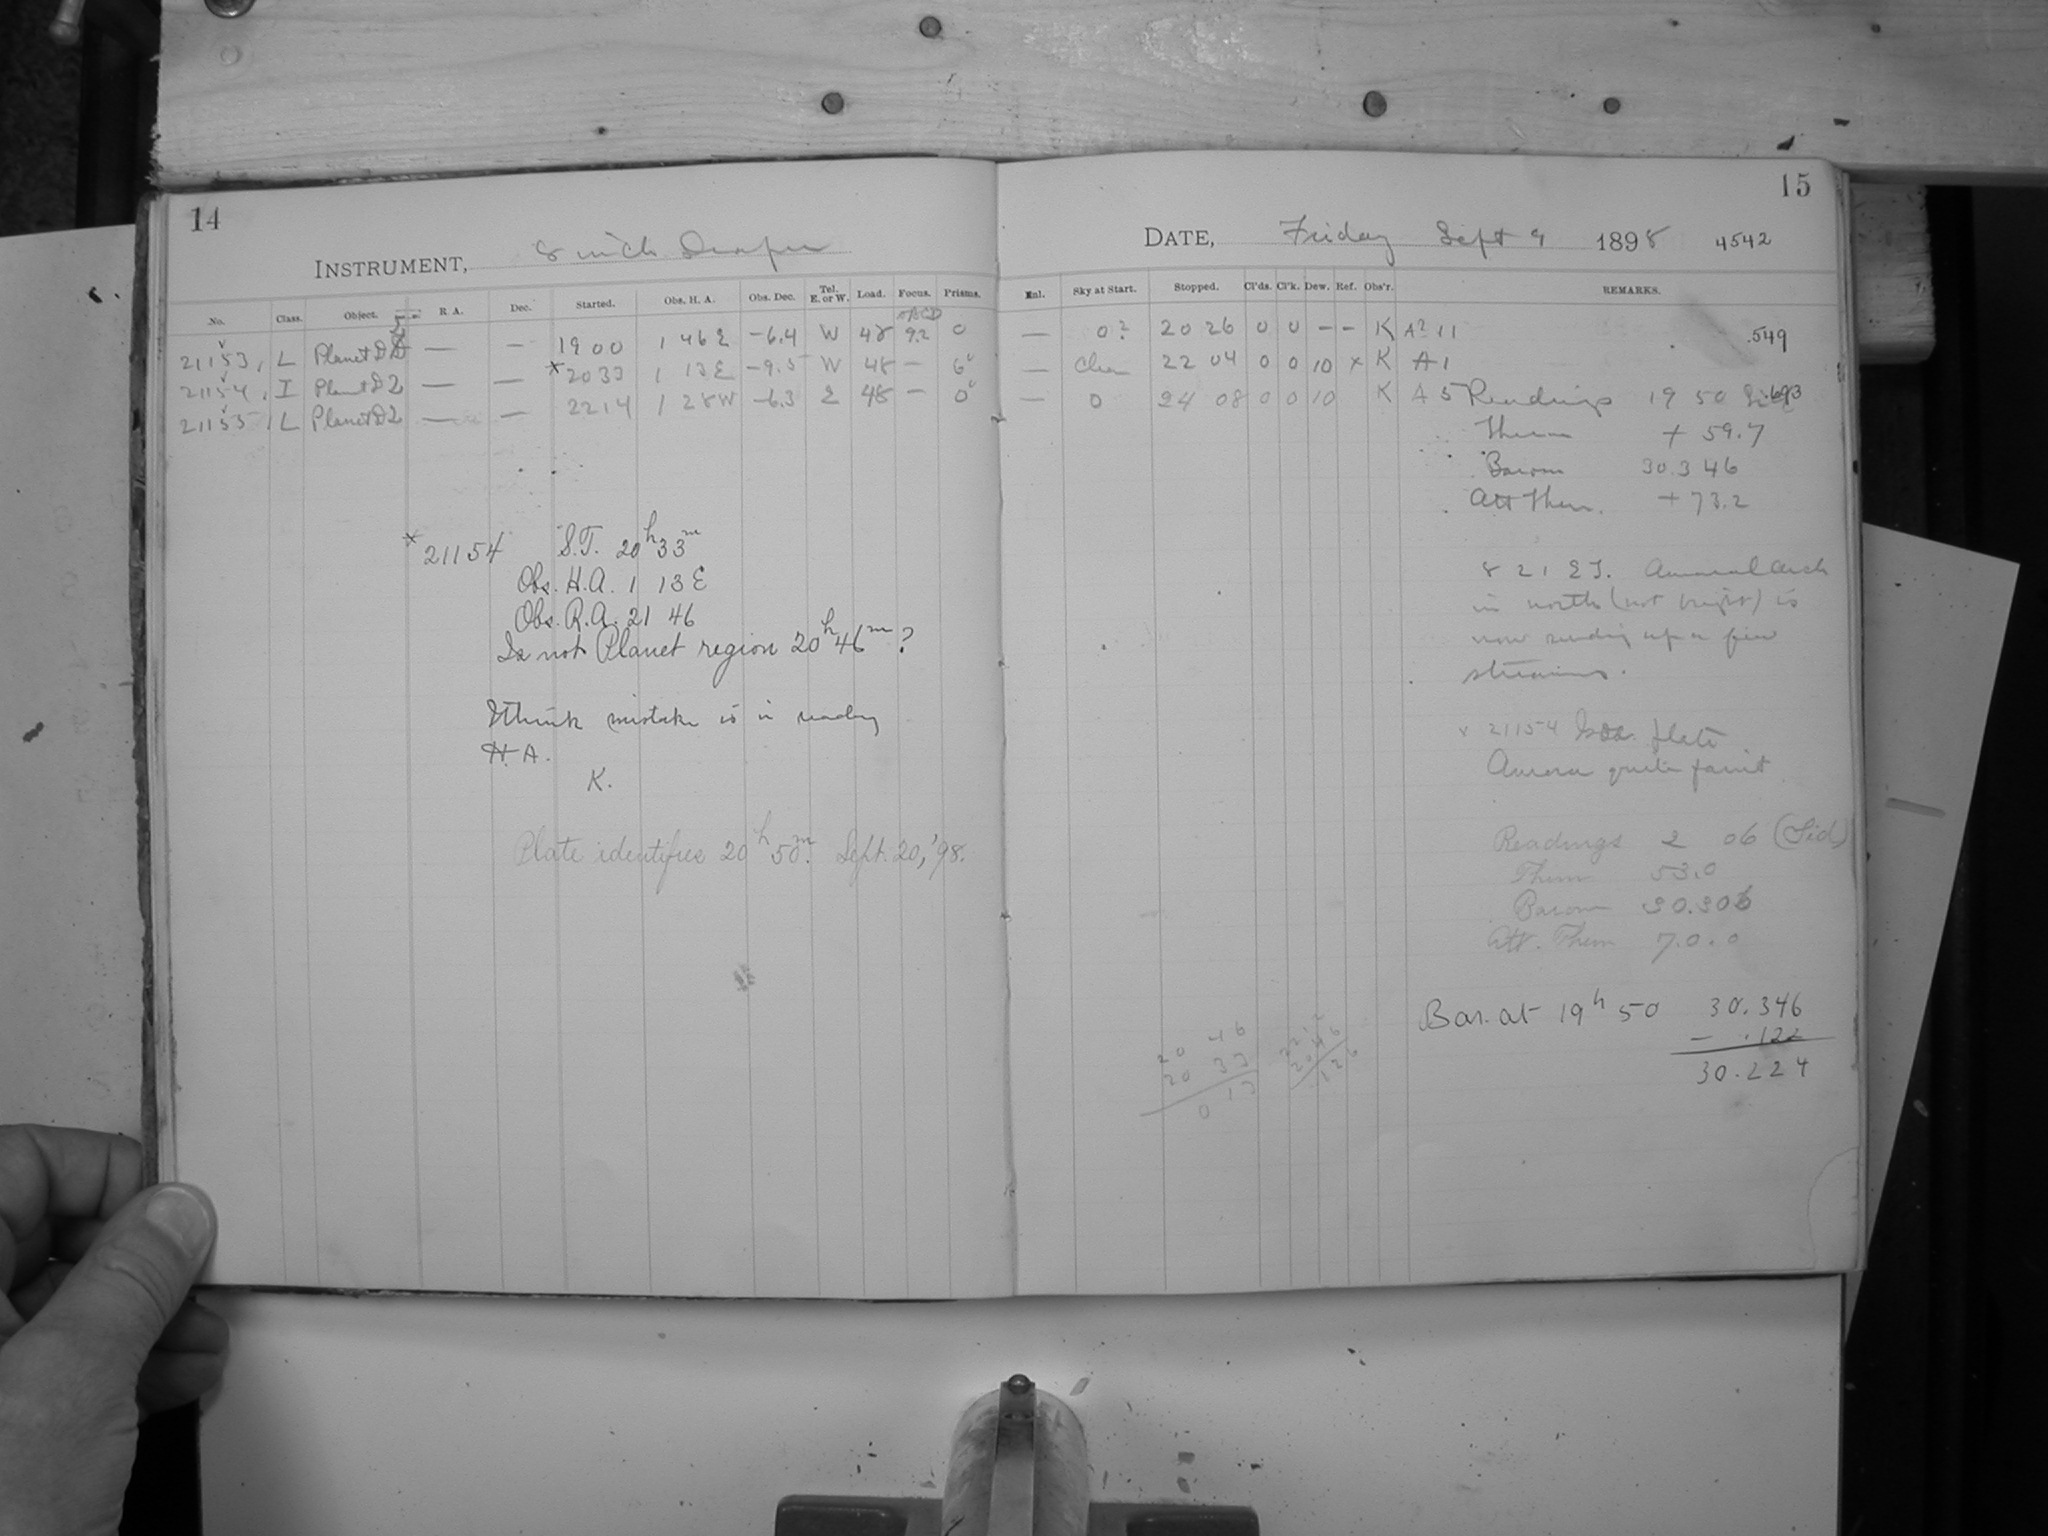 14
INSTRUMENT, 8 inch Draper
No. Class. Object. R. A. Dec. Started. Obs. H. A. Obs. Dec. Tel. E. or W. Load. Focus. Prisms.
21153, L Planet D — — 19 00 1 46 E -6.4 W 48 9.2 0
21154, I Planet D2 — — *20 33 1 13 E -9.5 W 48 — 6
21155, L Planet D2 — — 22 14 1 28 W -6.3 E 48 — 0
* 21154 S.T. 20h 33m
Obs. H.A. 1 13 E
Obs. R.A. 21 46
Is not Planet region 20h 46m?
I think mistake is in reading
H.A.
K.
Plate identifies 20h 50m. Sept. 20, '98.
15
DATE, Friday Sept 9 1898 4542
Enl. Sky at Start. Stopped. Cl'ds. Cl'k. Dew. Ref. Obs'r. REMARKS.
— 0? 20 26 0 0 – – K A2 11 .549
— Clear 22 04 0 0 10 x K A1
— 0 24 08 0 0 10 K A5 Readings 19 50 .693
Therm + 59.7
Barom 30.346
Att Ther. + 73.2
8 21 E T. Auroral Arch
in north (not bright) is
now sending up a few
streamers.
x 21154 Iso. plate
Aurora quite faint
Readings 2 06 (Sid)
Therm 53.0
Barom 30.306
Att. Therm 70.0
Bar. at 19h 50 30.346
– .122
30.224
20 46
20 33
0 13
22 12
20 46
1 26